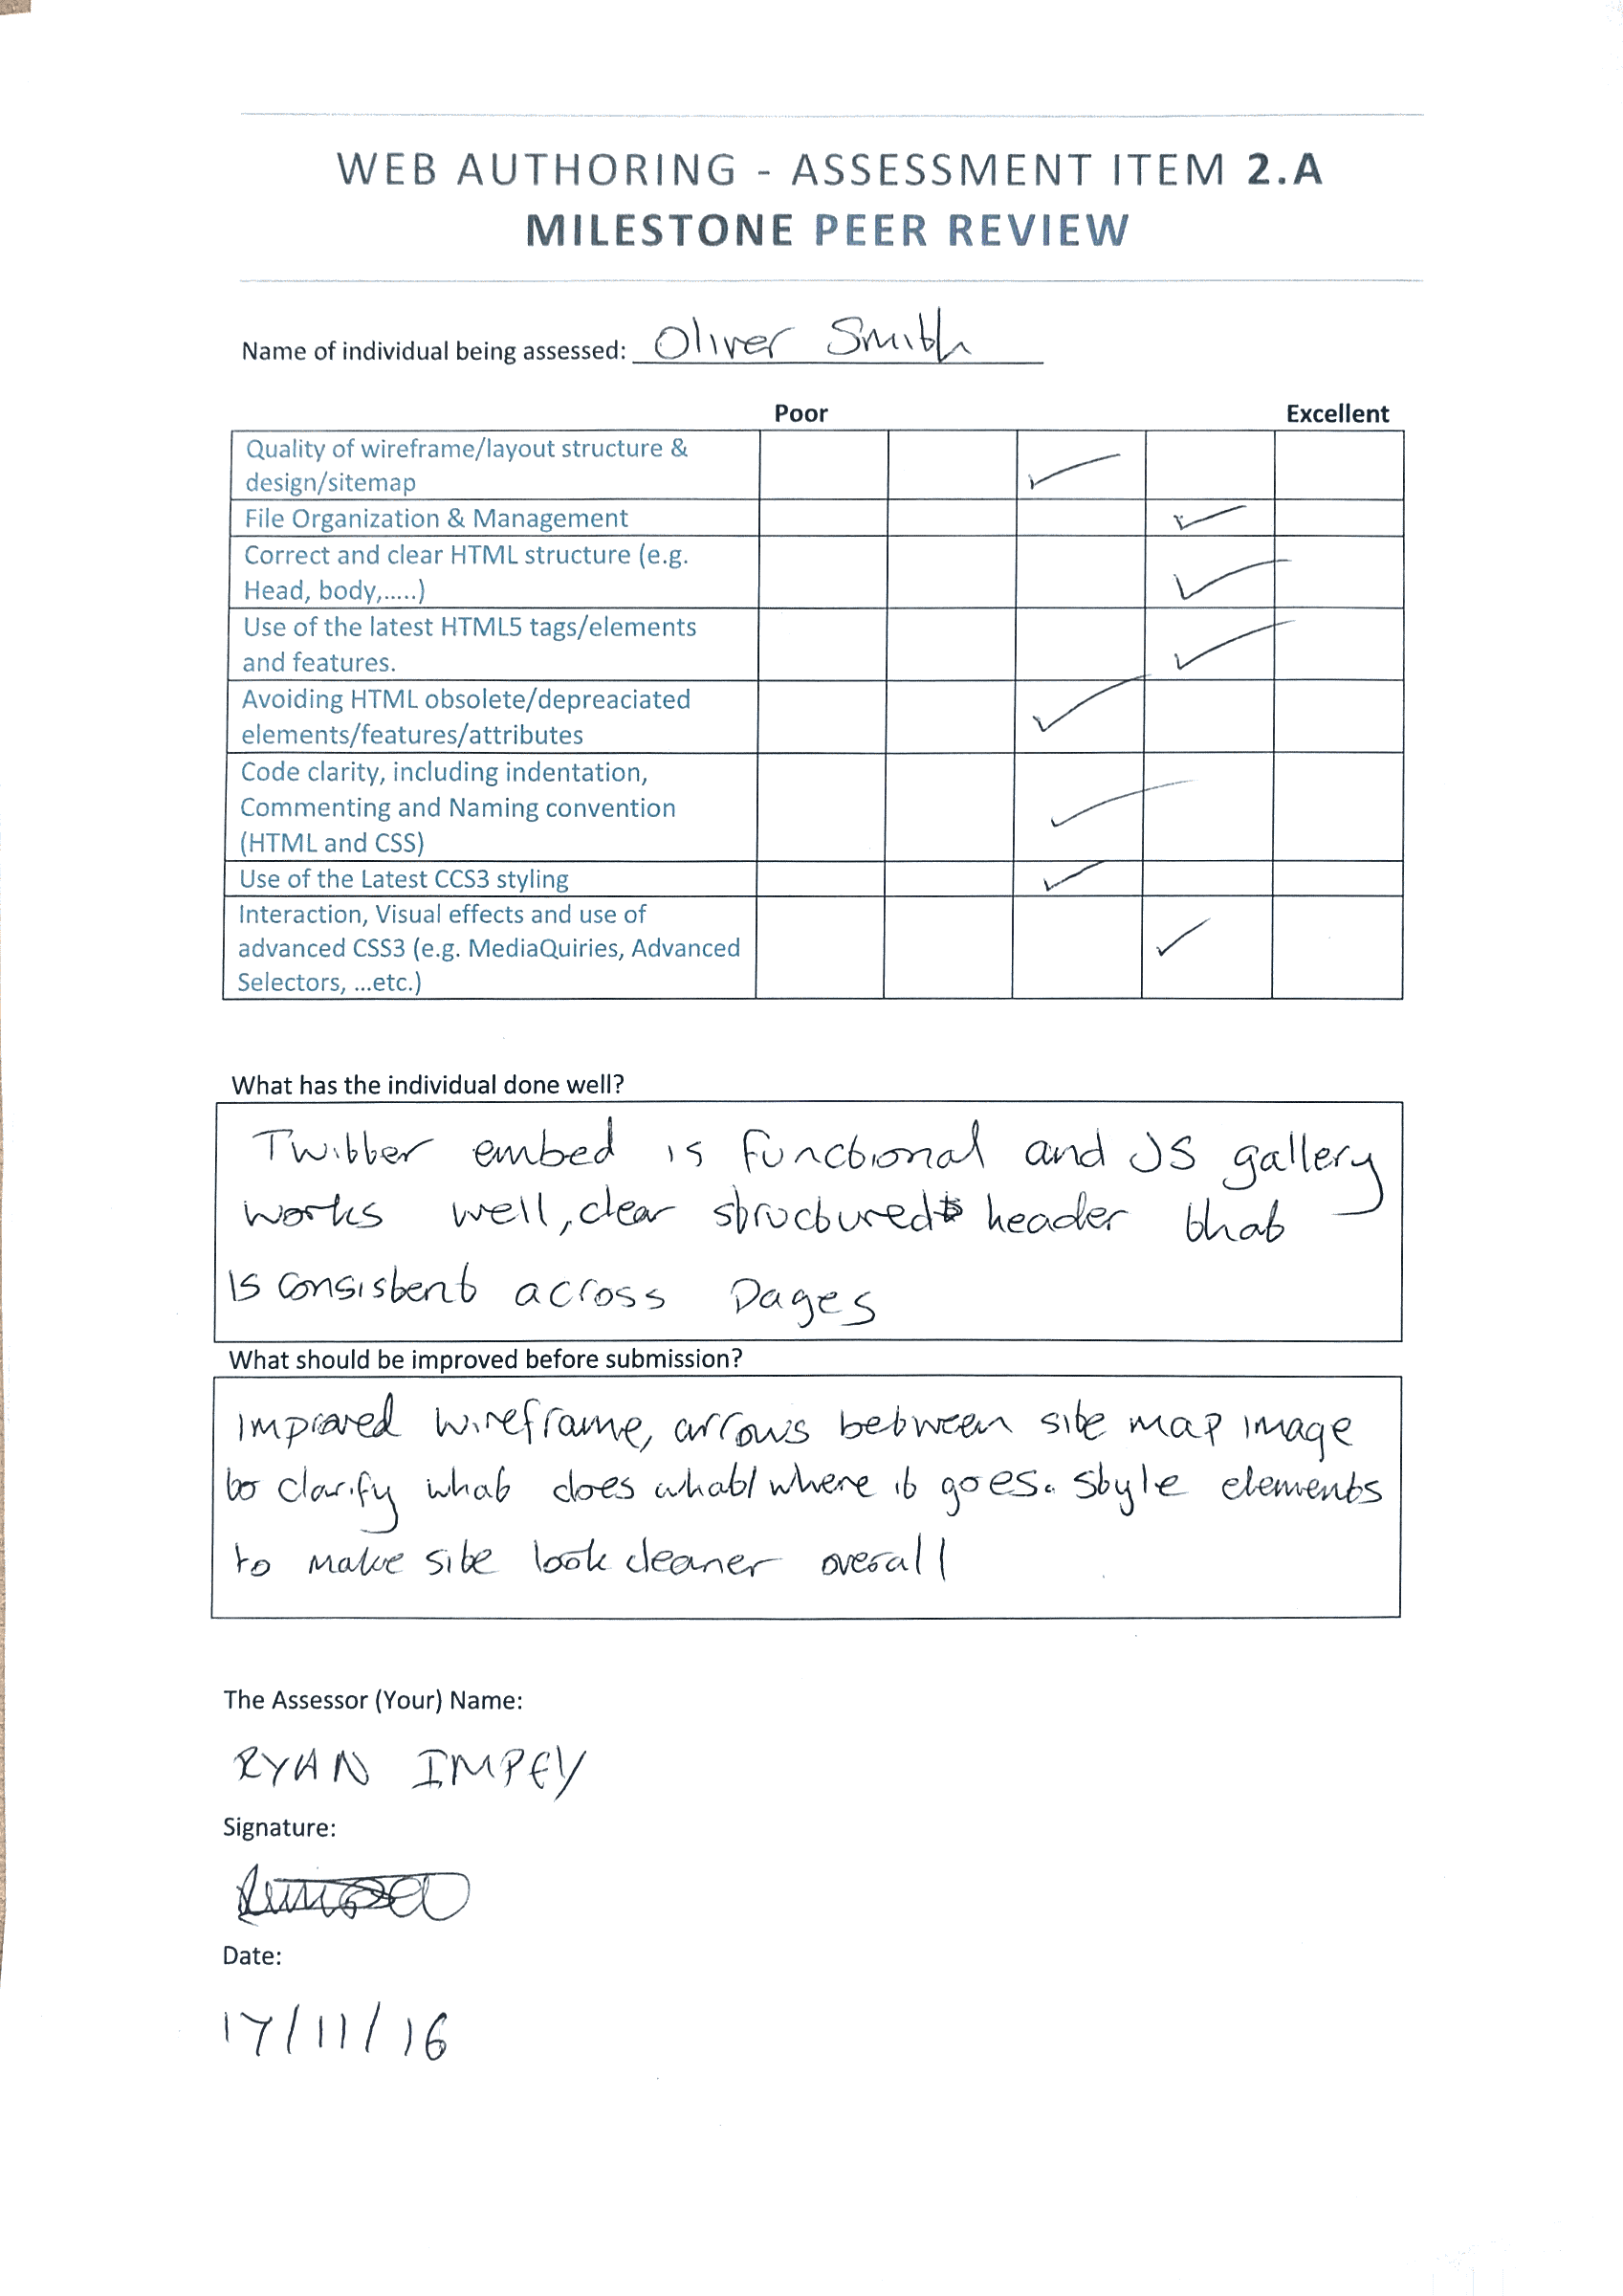 WEB AUTHORING - ASSESSMENT ITEM 2.A
MILESTONE PEER REVIEW
Name of individual being assessed: Oliver Smith
Poor Excellent
Quality of wireframe/layout structure &
design/sitemap
File Organization & Management
Correct and clear HTML structure (e.g.
Head, body,.....)
Use of the latest HTML5 tags/elements
and features.
Avoiding HTML obsolete/depreaciated
elements/features/attributes
Code clarity, including indentation,
Commenting and Naming convention
(HTML and CSS)
Use of the Latest CCS3 styling
Interaction, Visual effects and use of
advanced CSS3 (e.g. MediaQuiries, Advanced
Selectors, ...etc.)
What has the individual done well?
Twitter embed is functional and JS gallery
works well, clear structured header that
is consistent across pages
What should be improved before submission?
Improved wireframe, arrows between site map image
to clarify what does what/where it goes. Style elements
to make site look cleaner overall
The Assessor (Your) Name:
RYAN IMPEY
Signature:
Date:
17/11/16